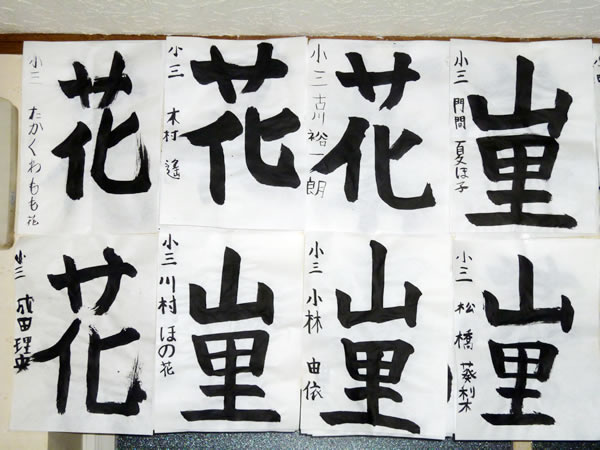 花
小三 たかくわもも花
花
小三 木村 遙
花
小三 古川裕一朗
山里
小三 門間 夏ほ子
花
小三 成田 理央
山里
小三 川村 ほの花
山里
小三 小林 由依
山里
小三 松橋 葵梨